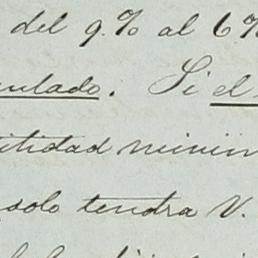 del 9.% al 6%
ulado. Si el
tidad minim
solo tendra V.